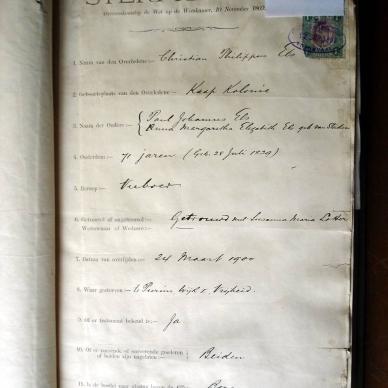 Overeenkomstig de Wet op de Weeskamer, 10 November 1862.
1. Naam van den Overledene:- Christian Philippus Els
2. Geboorteplaats van den Overledene:- Kaap Kolonie
3. Naam der Ouders:- Paul Johannes Els
Anna Margaretha Elizabeth Els geb van
4. Ouderdom:- 71 jaren (Geb. 28 Juli 1829)
5. Beroep:- Veeboer
6. Getrouwd of ongetrouwd:- Getrouwd met Susanna Maria
Weduwnaar of Weduwe:-
7. Datum van overlijden:- 24 Maart 1900
8. Waar gestorven:- Wijk Vrijheid.
9. Of er testament bekend is:- Ja
10. Of er roerende of onroerende goederen Beiden
of beiden zijn nagelaten:-
11. Is de boedel